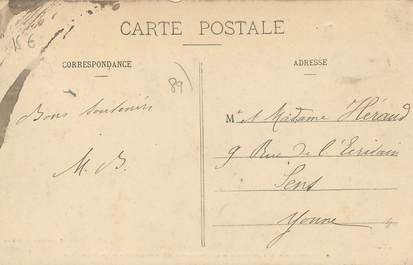 15 €
CARTE POSTALE
CORRESPONDANCE
ADRESSE
89
Bons Souvenirs
M. B.
M et Madame Héraud
9 Rue de l'Ecrivain
Sens
Yonne